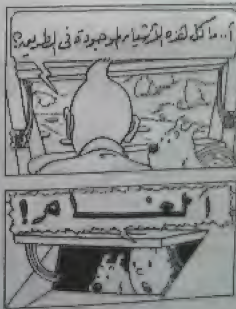 أ.. ما كل هذه الأشياء الموجودة في الطريق؟
الغنام!